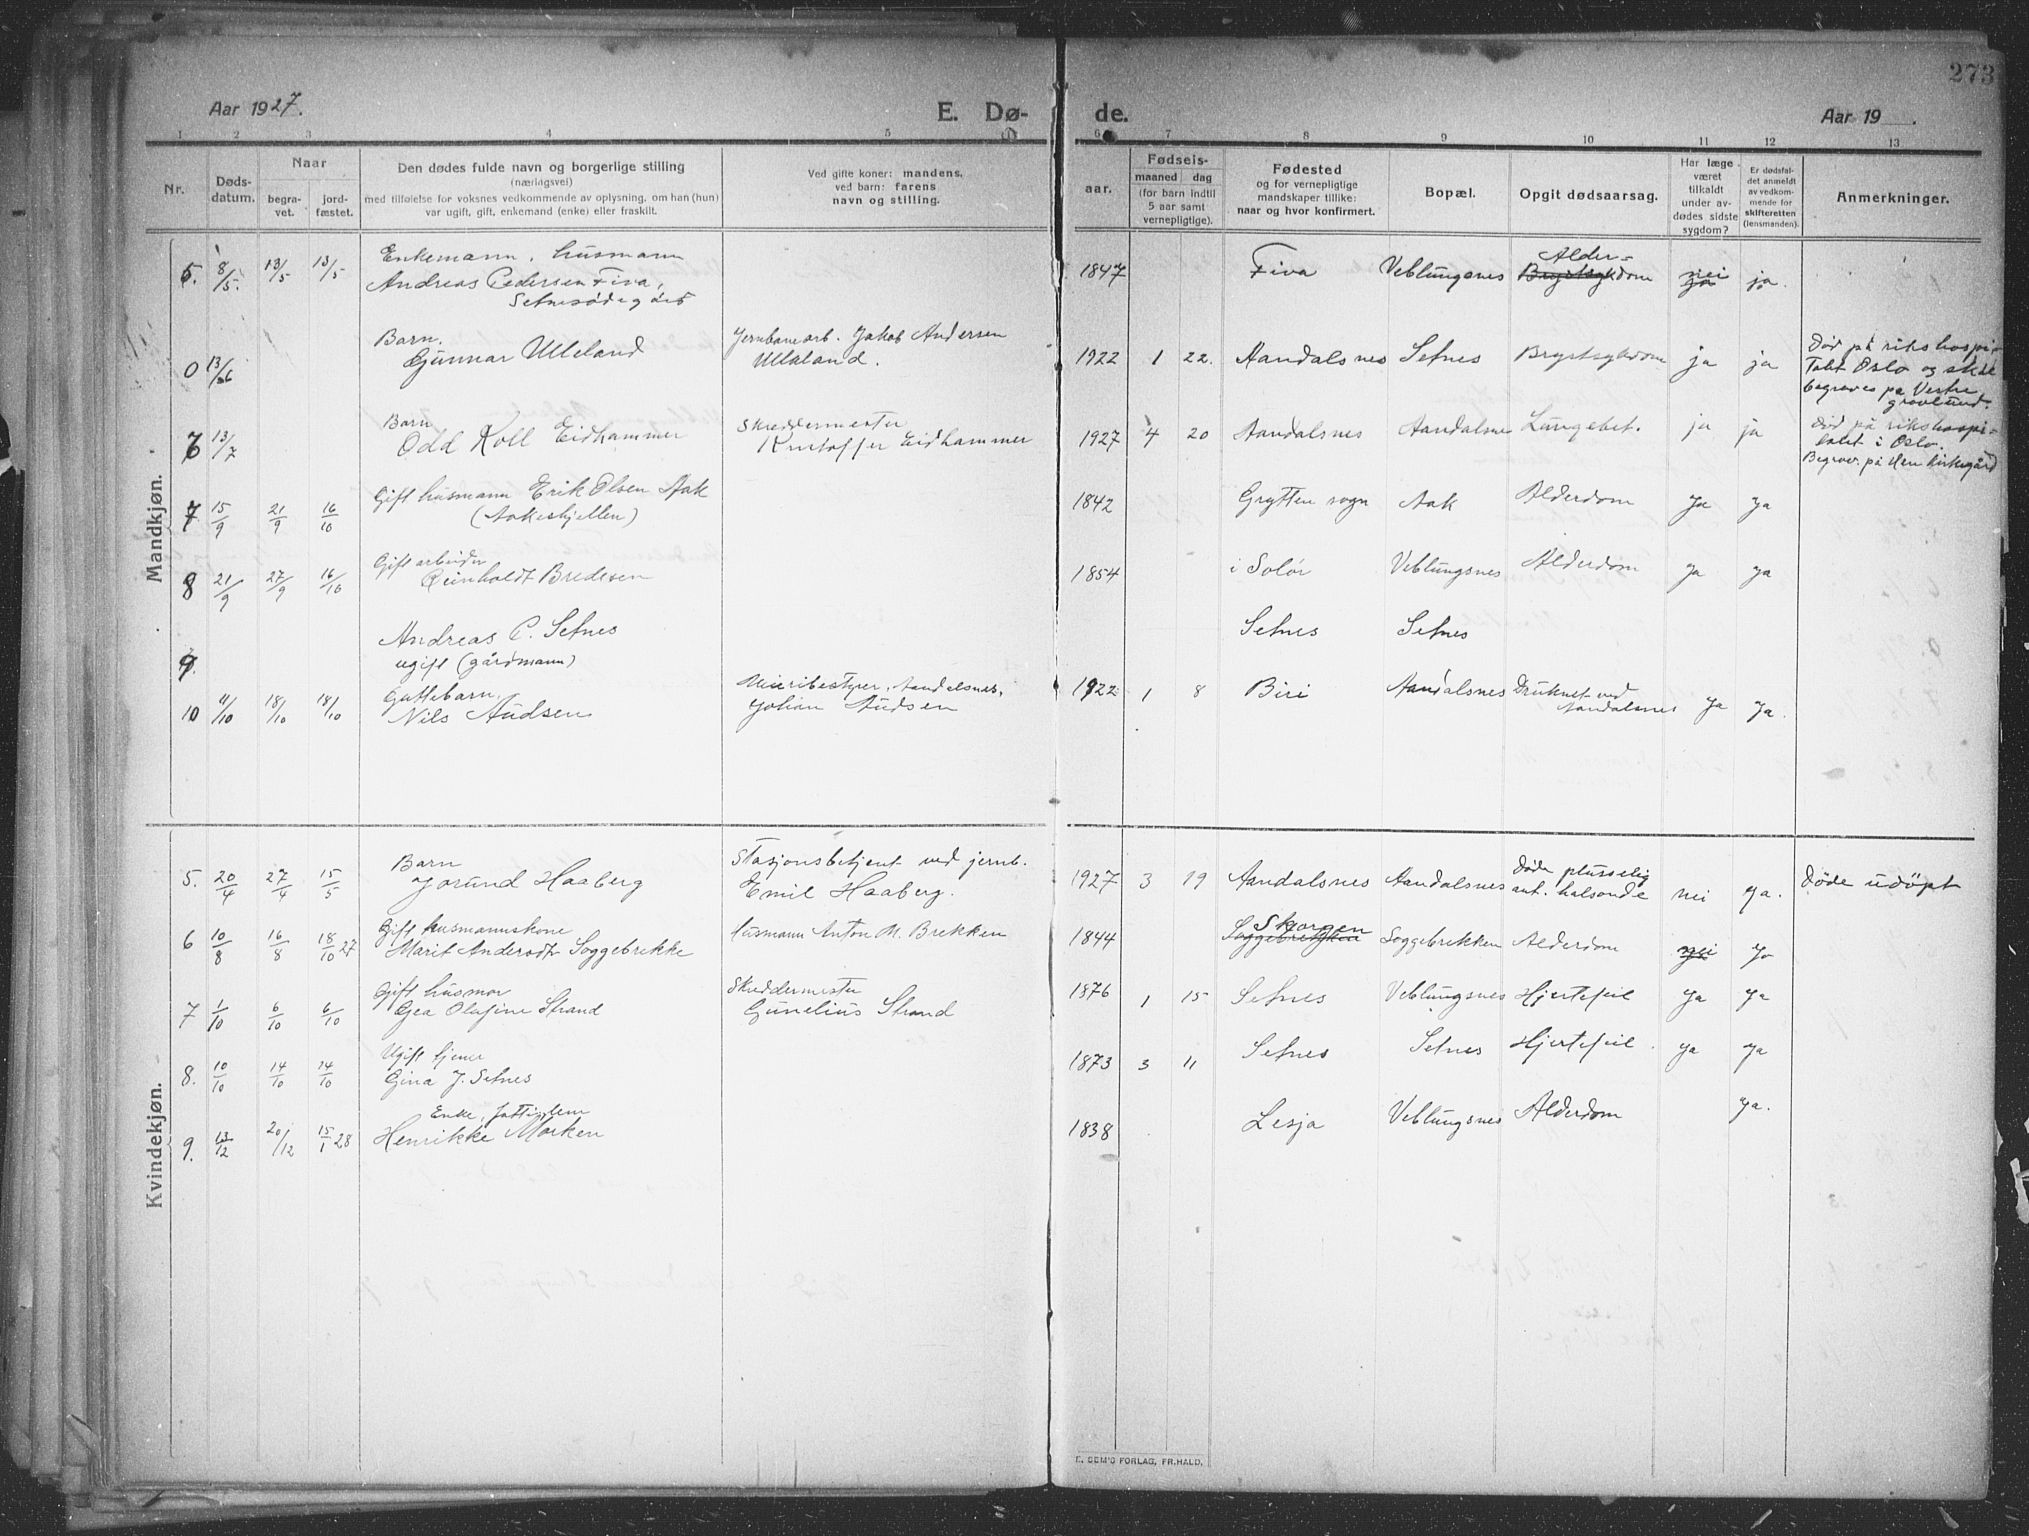 273
Aar 1927.
E. Dø-
de.
Aar 19 .
1 2 3 4 5 6 7 8 9 10 11 12 13
Nr.
Døds-
datum.
Naar
begra-
vet.
jord-
fæstet.
Den dødes fulde navn og borgerlige stilling
(næringsvei)
med tilføielse for voksnes vedkommende av oplysning, om han (hun)
var ugift, gift, enkemand (enke) eller fraskilt.
Ved gifte koner: mandens,
ved barn: farens
navn og stilling.
aar.
Fødsels-
maaned dag
(for barn indtil
5 aar samt
vernepligtige).
Fødested
og for vernepligtige
mandskaper tillike:
naar og hvor konfirmert.
Bopæl.
Opgit dødsaarsag.
Har læge
været
tilkaldt
under av-
dødes sidste
sygdom?
Er dødsfal-
det anmeldt
av vedkom-
mende for
skifteretten
(lensmanden).
Anmerkninger.
Mandkjøn.
Enkemann, husmann
5. 8/5. 13/5 13/5 Andreas Pedersen Fiva, 1847 Fiva Veblungsnes Alder-
Setnesødegård Brystsykdom nei ja ja.
Barn. Jernbanearb. Jakob Andersen
0 13/6 Gunnar Ulleland Ullaland. 1922 1 22. Aandalsnes Setnes Brystsykdom ja ja
Död på rikshospi-
talet Oslo og skal
begraves på Vestre
gravlund.
Barn Skreddermester
6 13/7 Odd Koll Eidhammer Kristoffer Eidhammer 1927 4 20 Aandalsnes Aandalsnes Lungebet. ja ja
död på rikshospi-
talet i Oslo.
Begrav. på Hen kirkegård
7 15/9 21/9 16/10 Gift husmann Erik Olsen Aak 1842 Grytten sogn Aak Alderdom ja ja
(Aakeshjellen)
Gift arbeider
8 21/9 27/9 16/10 Reinholdt Bredesen 1854 i Solör Veblungsnes Alderdom ja ja
9. Andreas P. Setnes Setnes Setnes
ugift (gårdmann)
Guttebarn. Meieribestyrer, Aandalsnes,
10 11/10 18/10 18/10 Nils Audsen Johan Audsen 1922 1 8 Biri Aandalsnes Druknet ved
Aandalsnes ja ja.
Kvindekjøn.
Barn Stasjonsbetjent ved jernb.
5. 20/4 27/4 15/5 Jorund Haaberg Emil Haaberg. 1927 3 19 Aandalsnes Aandalsnes Døde plusselig
ant. halsonde nei ja. Döde udöpt
Gift husmannskone
6 10/8 16/8 18/10 27 Marit Andersdtr Soggebrekke husmann Anton M. Brekken 1844 Skorgen
Soggebrekken Soggebrekken Alderdom nei ja
Gift husmor Skreddermester
7 1/10 6/10 6/10 Gea Olufine Strand Gunelius Strand 1876 1 15 Setnes Veblungsnes Hjertefeil ja ja
Ugift tjener
8. 10/10 14/10 14/10 Gina J. Setnes 1873 3 11 Setnes Setnes Hjertefeil. ja ja
Enke, fattiglem
9. 13/12 20/12 15/1 28 Henrikke Morken 1838 Lesja Veblungsnes Alderdom ja.
SEM'S FORLAG, FR.HALD.